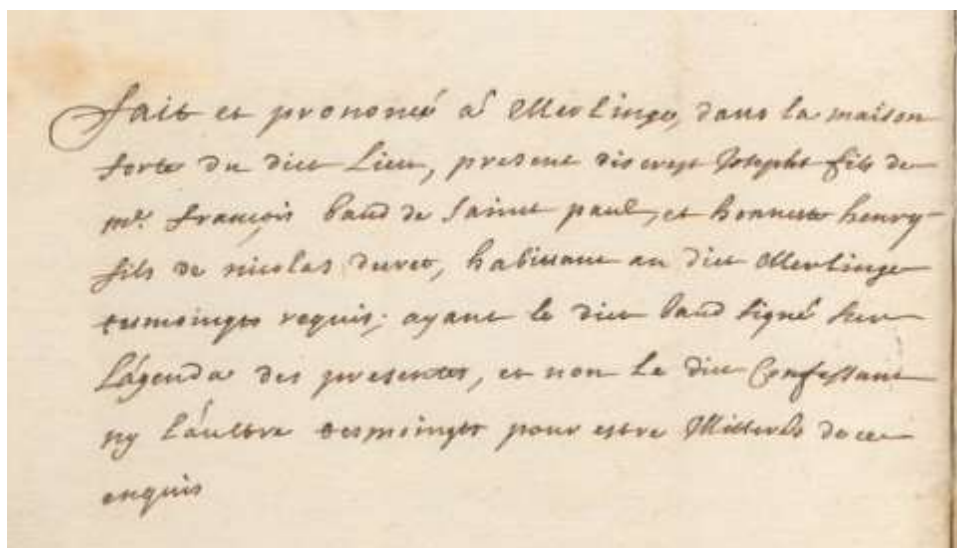 fait et prononcé a Merlinge, dans la maison
forte du dict Lieu, present discrept Josepht fils de
mr. françois baud de Sainct paul, et honneste henry
fils de nicolas duret, habittant au dict Merlinge
tesmoingts requis; ayant le dict baud signé sur
L'agenda des presentes, et non le dict Confessant
ny l'aultre tesmoingts pour estre Illitterés de ce
enquis